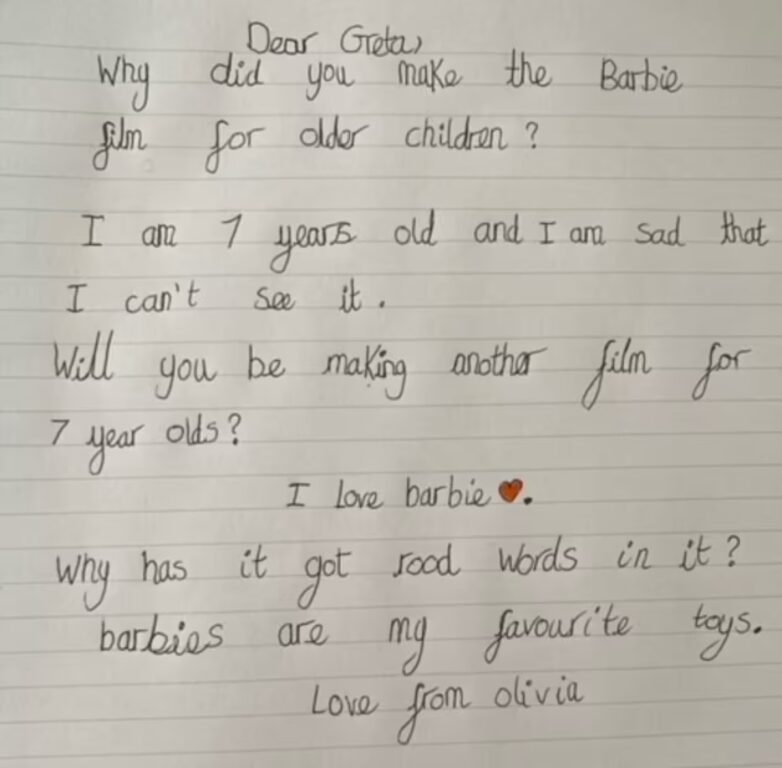 Dear Greta,
Why did you make the Barbie
film for older children?
I am 7 years old and I am sad that
I can't see it.
Will you be making another film for
7 year olds?
I love barbie ❤.
Why has it got rood words in it?
barbies are my favourite toys.
Love from olivia